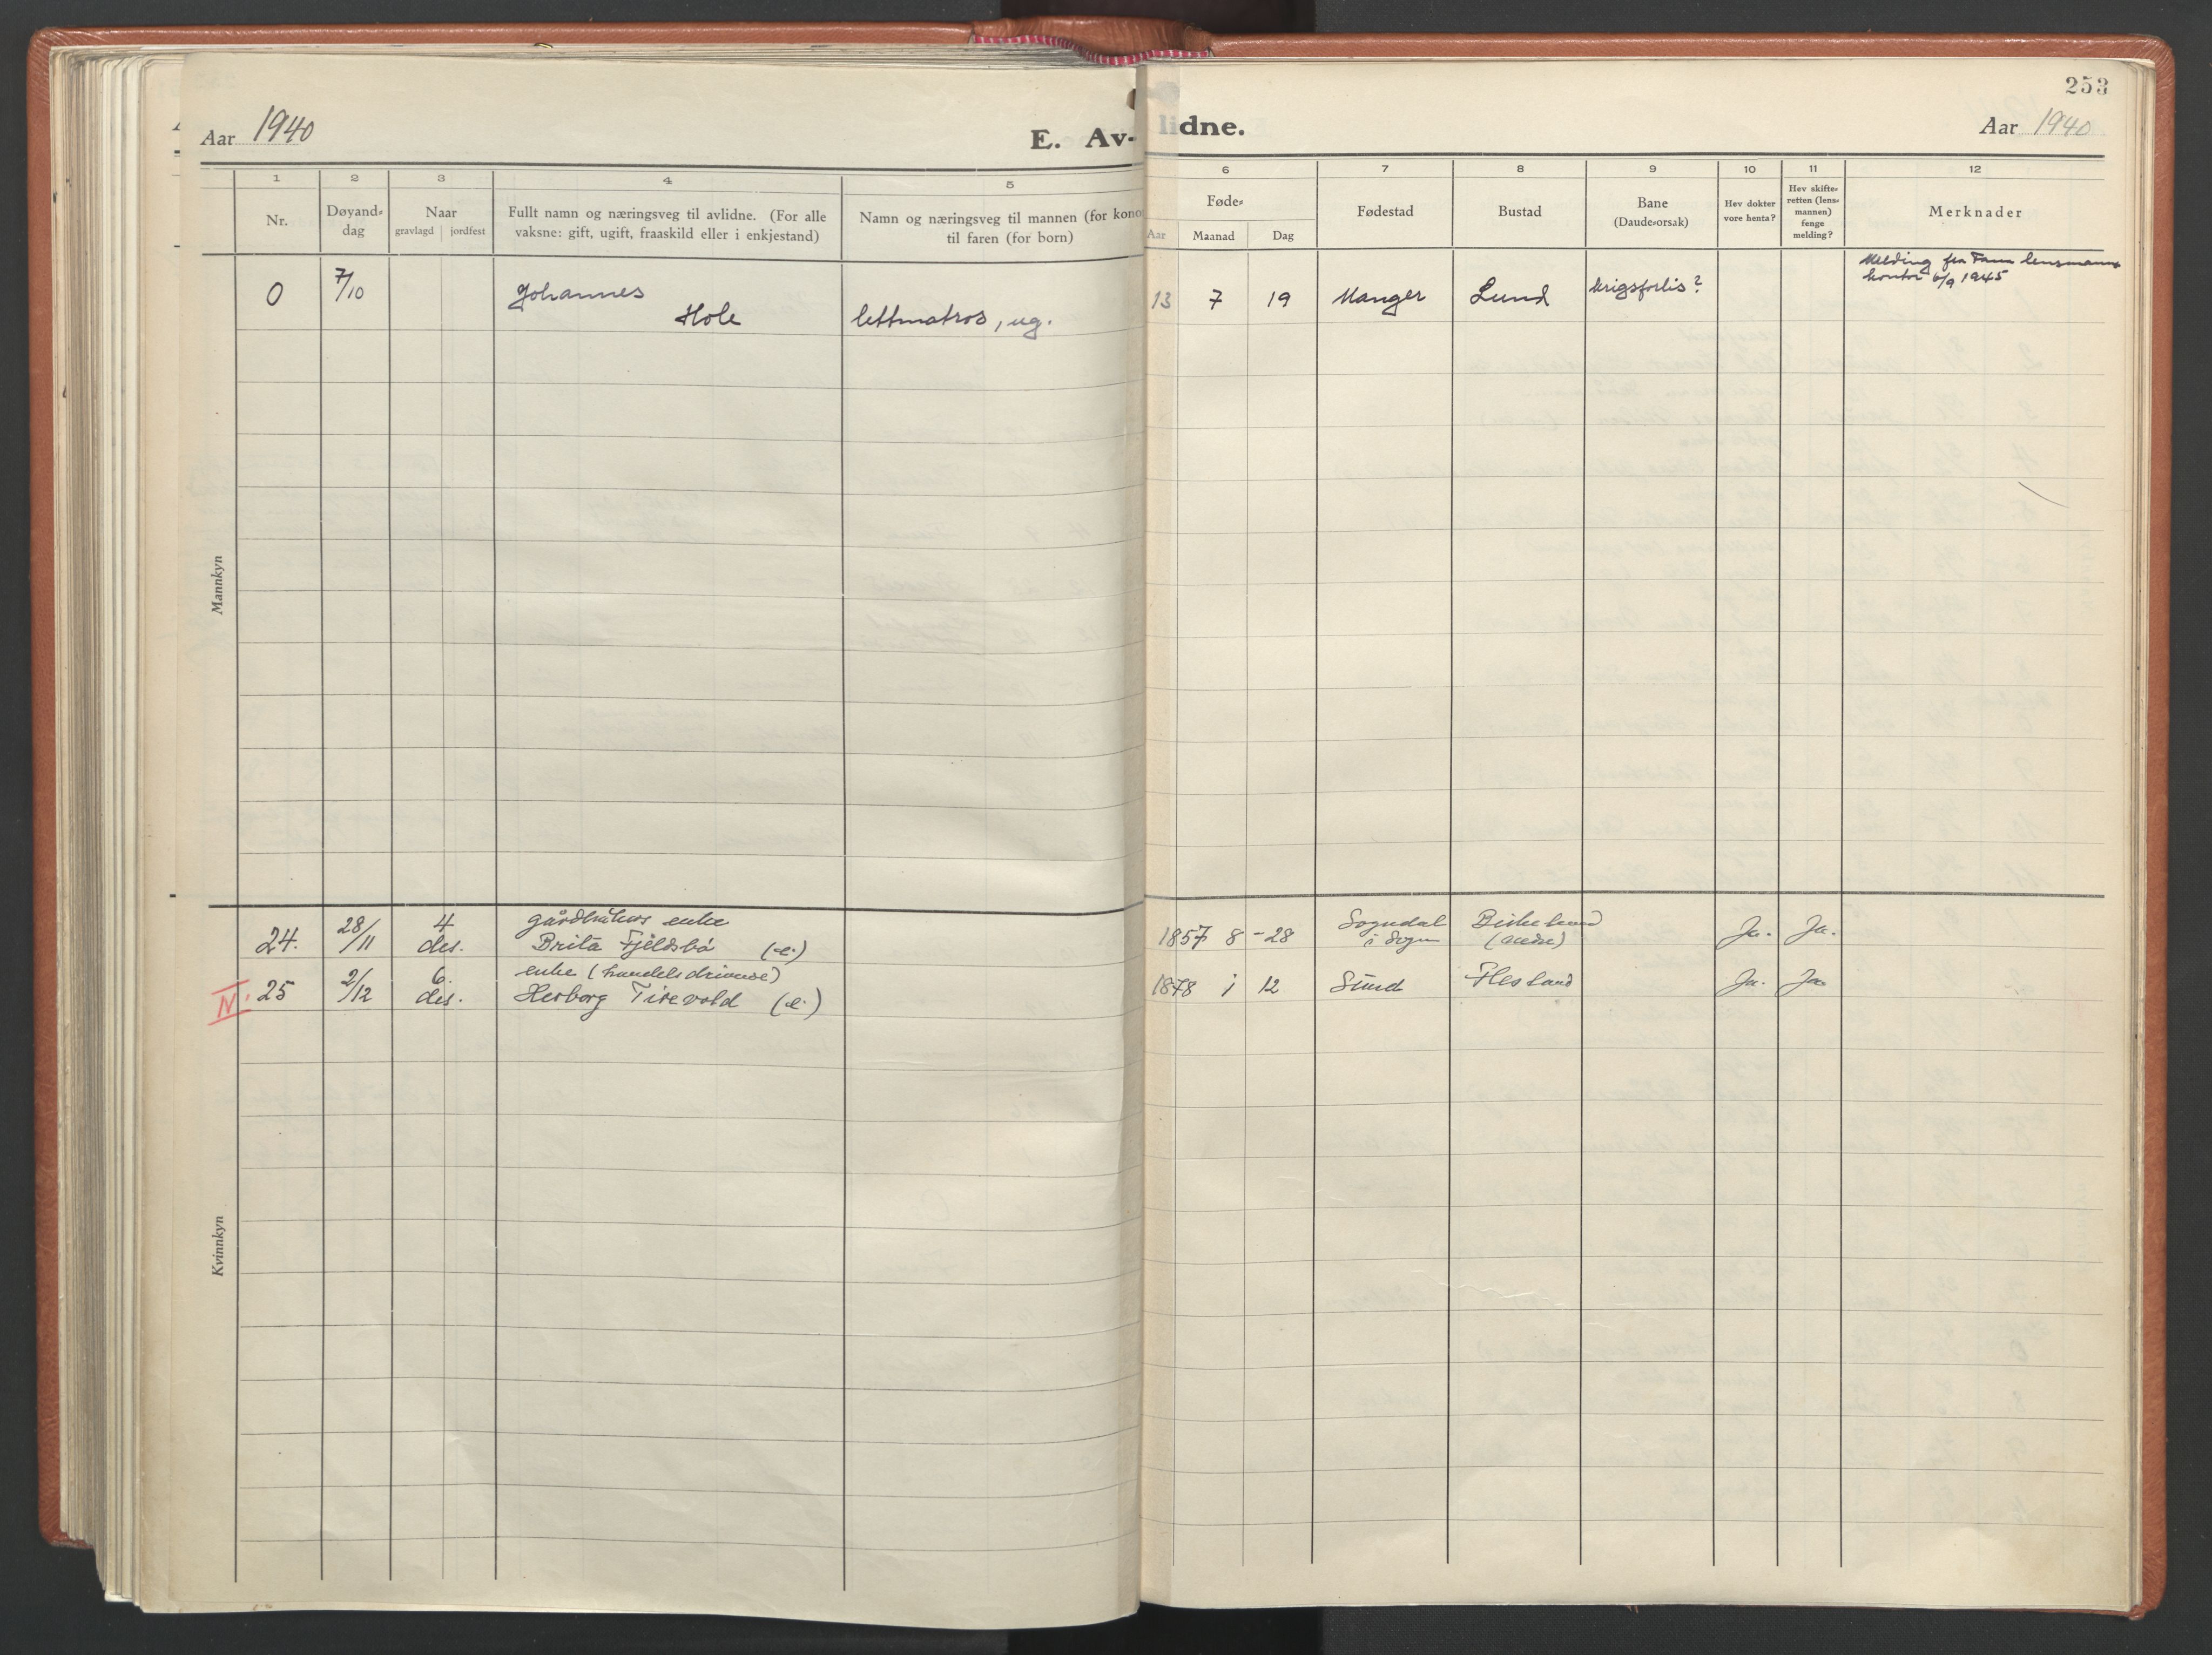 253
Aar 1940
E. Av-lidne.
Aar 1940
1 2 3 4 5 6 7 8 9 10 11 12
Nr.
Døyand-
dag
Naar
gravlagd jordfest
Fullt namn og næringsveg til avlidne. (For alle
vaksne: gift, ugift, fraaskild eller i enkjestand)
Namn og næringsveg til mannen (for kono
til faren (for born)
Føde-
Aar Maanad Dag
Fødestad
Bustad
Bane
(Daude-orsak)
Hev dokter
vore henta?
Hev skifte-
retten (lens-
mannen)
fenge
melding?
Merknader
Mannkyn
0 7/10 Johannes
Hole lettmatros, ug. 13 7 19 Manger Lund krigsforlis?
Melding fra Fana lensmanns
kontor 6/9 1945
Kvinnkyn
gårdbrukers enke
24. 28/11 4 des. Brita Fjeldsbø (e.) 1857 8 - 28 Sogndal
i Sogn Birkeland
Ja. Ja.
enke (handelsdrivende)
N. 25 2/12 6. des. Herborg Tirevold (e.) 1878 1 12 Sund Flesland Ja. Ja